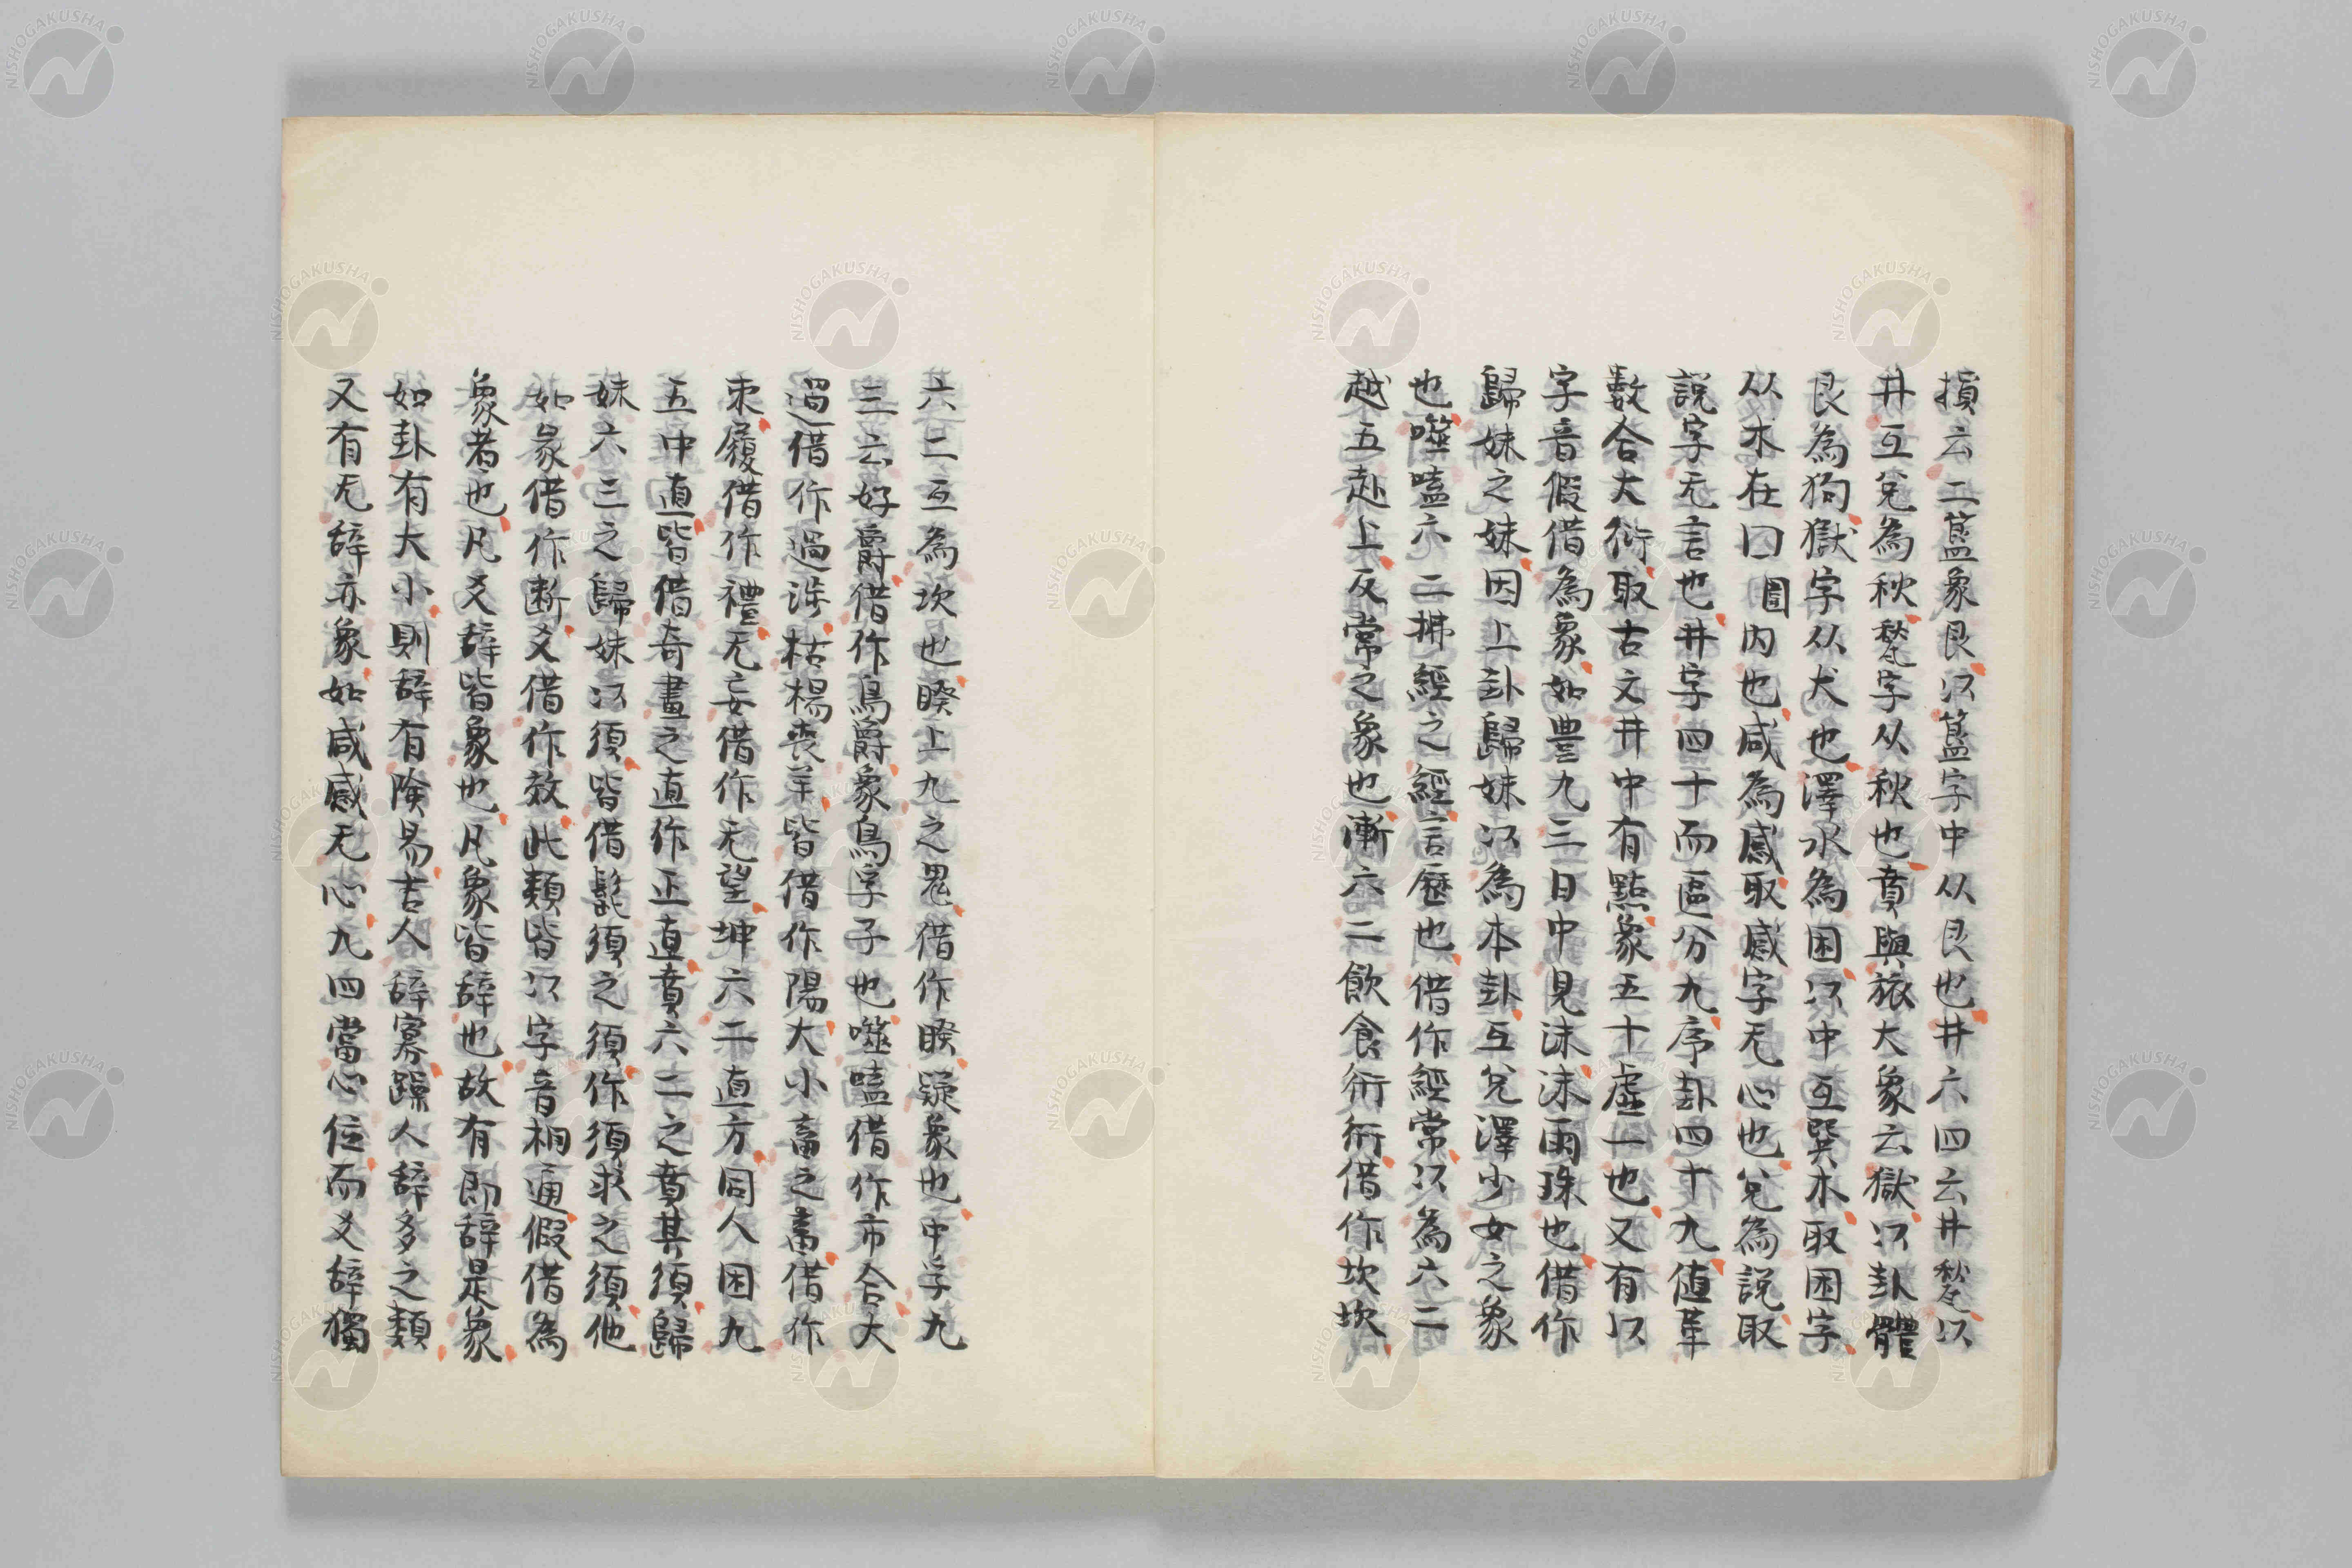 損云二簋象艮以簋字中从艮也井六四云井甃以
井互兌為秋甃字从秋也賁與旅大象云獄以卦體
艮為狗獄字从犬也澤水為困以中互巽木取困字
从木在囗圍內也咸為感取感字无心也兌為說取
說字无言也井字四十而區分九序卦四十九值革
數合大衍取古文井中有點象五十虛一也又有以
字音假借為象如豐九三日中見沬沬雨珠也借作
歸妹之妹因上卦歸妹以為本卦互兌澤少女之象
也噬嗑六二拂經之經言歷也借作經常以為六二
越五赴上反常之象也漸六二飲食衎衎借作坎坎
六二互為坎也睽上九之鬼借作睽疑象也中孚九
三云好爵借作鳥爵象鳥字子也噬嗑借作市合大
過借作過涉枯楊喪羊皆借作陽大小畜之畜借作
束履借作禮无妄借作无望坤六二直方同人困九
五中直皆借奇畫之直作正直賁六二之賁其須歸
妹六三之歸妹以須皆借髭須之須作須求之須他
如彖借作斷爻借作效此類皆以字音相通假借為
象者也凡爻辭皆象也凡象皆辭也故有即辭是象
如卦有大小則辭有險易吉人辭寡躁人辭多之類
又有无辭亦象如咸感无心九四當心位而爻辭獨
NISHOGAKUSHA